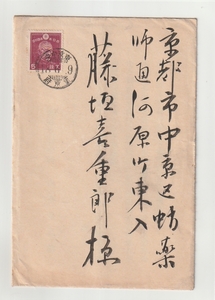 京都市中京区蛸薬
師通河原町東入
藤垣喜重郎様